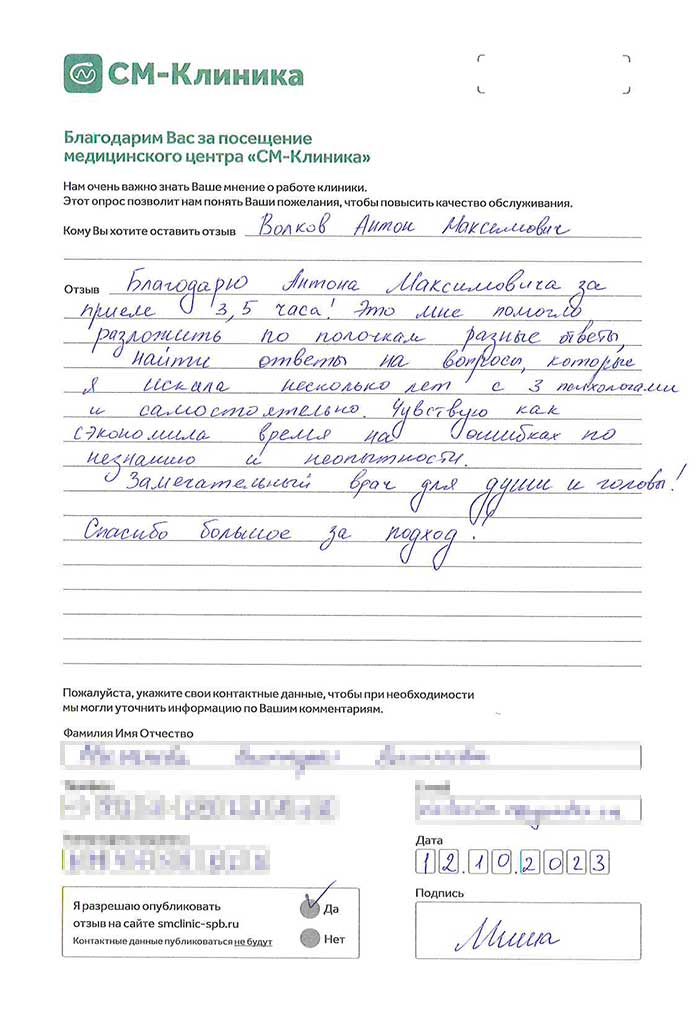 СМ-Клиника
Благодарим Вас за посещение
медицинского центра «СМ-Клиника»
Нам очень важно знать Ваше мнение о работе клиники.
Этот опрос позволит нам понять Ваши пожелания, чтобы повысить качество обслуживания.
Кому Вы хотите оставить отзыв Волков Антон Максимович
Отзыв Благодарю Антона Максимовича за
прием 3,5 часа! Это мне помогло
разложить по полочкам разные ответы,
найти ответы на вопросы, которые
я искала несколько лет с 3 психологами
и самостоятельно. Чувствую как
сэкономила время на ошибках по
незнанию и неопытности.
Замечательный врач для души и головы!
Спасибо большое за подход!
Пожалуйста, укажите свои контактные данные, чтобы при необходимости
мы могли уточнить информацию по Вашим комментариям.
Фамилия Имя Отчество
Дата
12.10.2023
Я разрешаю опубликовать
отзыв на сайте smclinic-spb.ru
Контактные данные публиковаться не будут
Да
Нет
Подпись